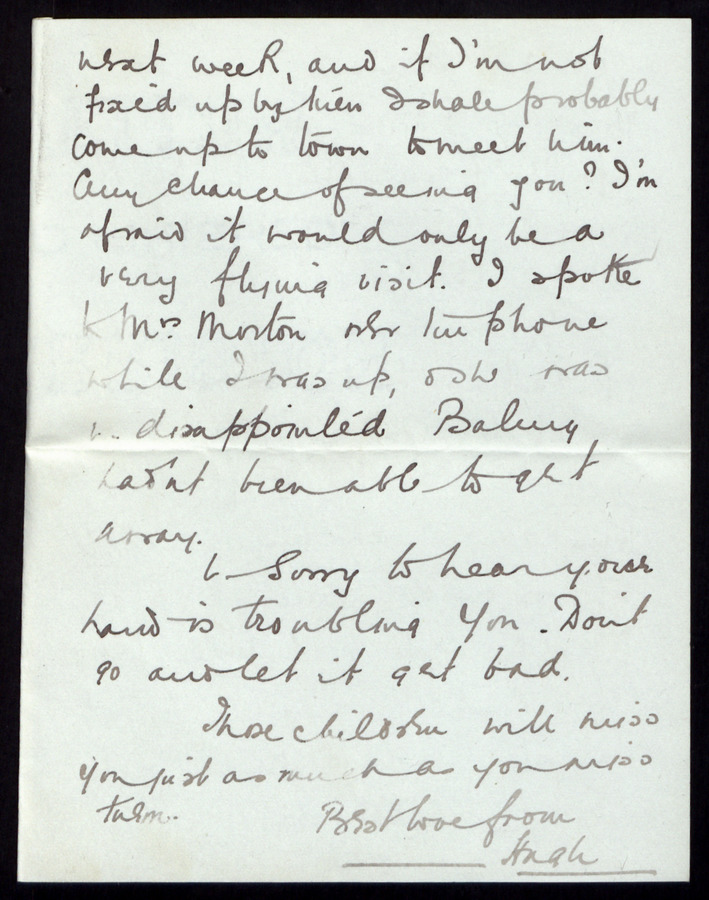 next week, and if I'm not
fixed up by then I shall probably
come up to town to meet him.
Any chance of seeing you? I'm
afraid it would only be a
very flying visit. I spoke
to Mrs Morton over the phone
while I was up, & she was
v. disappointed
hadn't been able to get
away.
v. Sorry to hear your
hand is troubling you. Don't
go and let it get bad.
Those children will miss
you just as much as you miss
them.
Best love from
Hugh